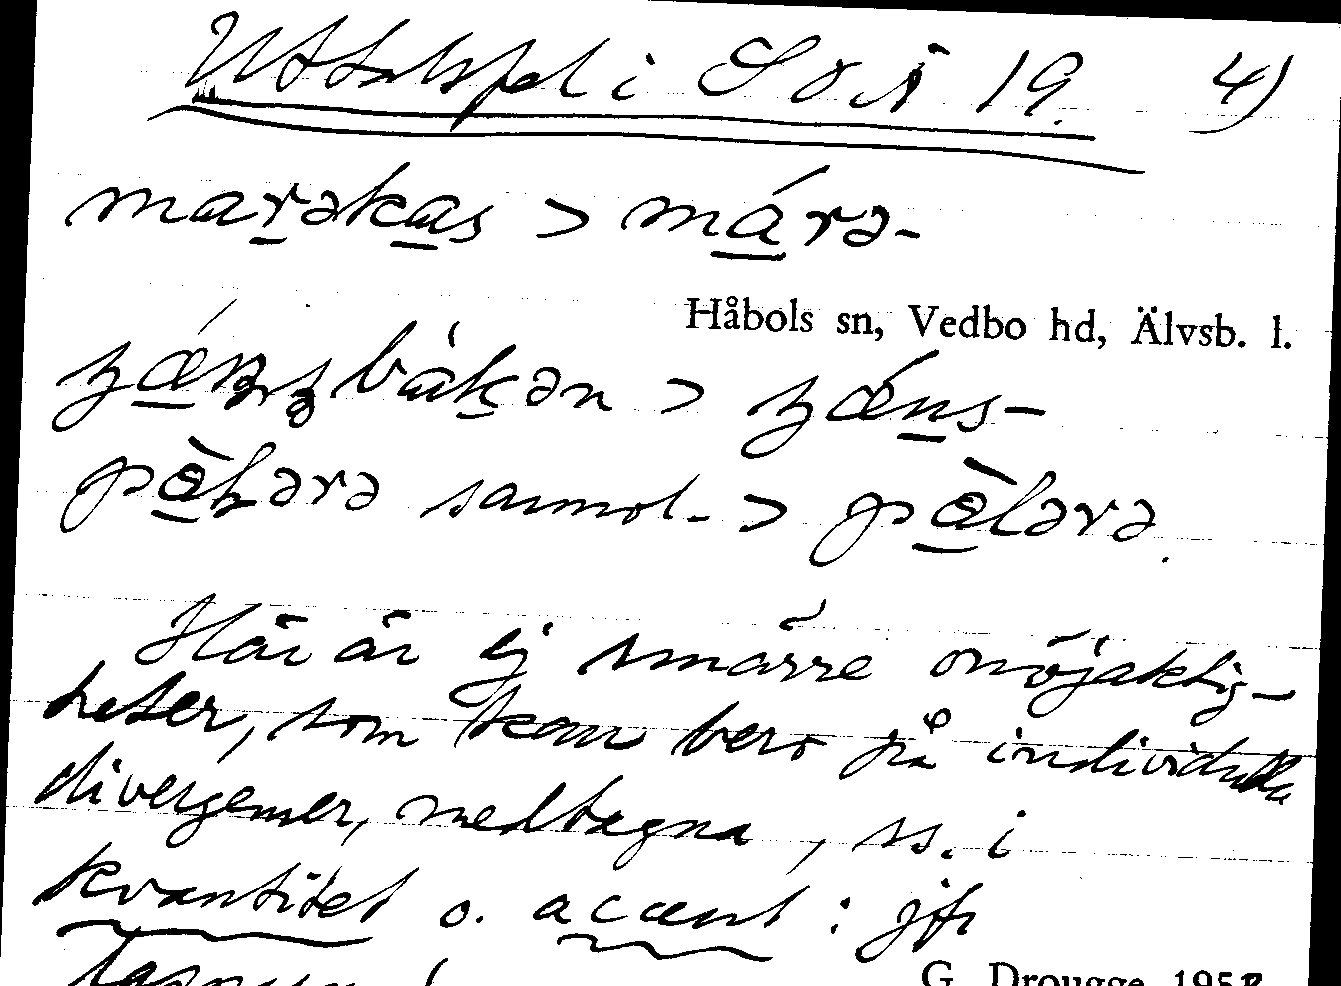 Uttalsfel i SOÅ 19. 4)
marəkas > márə-
Håbols sn, Vedbo hd, Älvsb. l.
bàkən >
samol. > pæ̀lərə.
Här är ej smärre onöjaktig-
heter, som kan bero på individuella
divergenser, medtagna, ss. i
kvantitet o. accent: jfr
G. Drougge 195